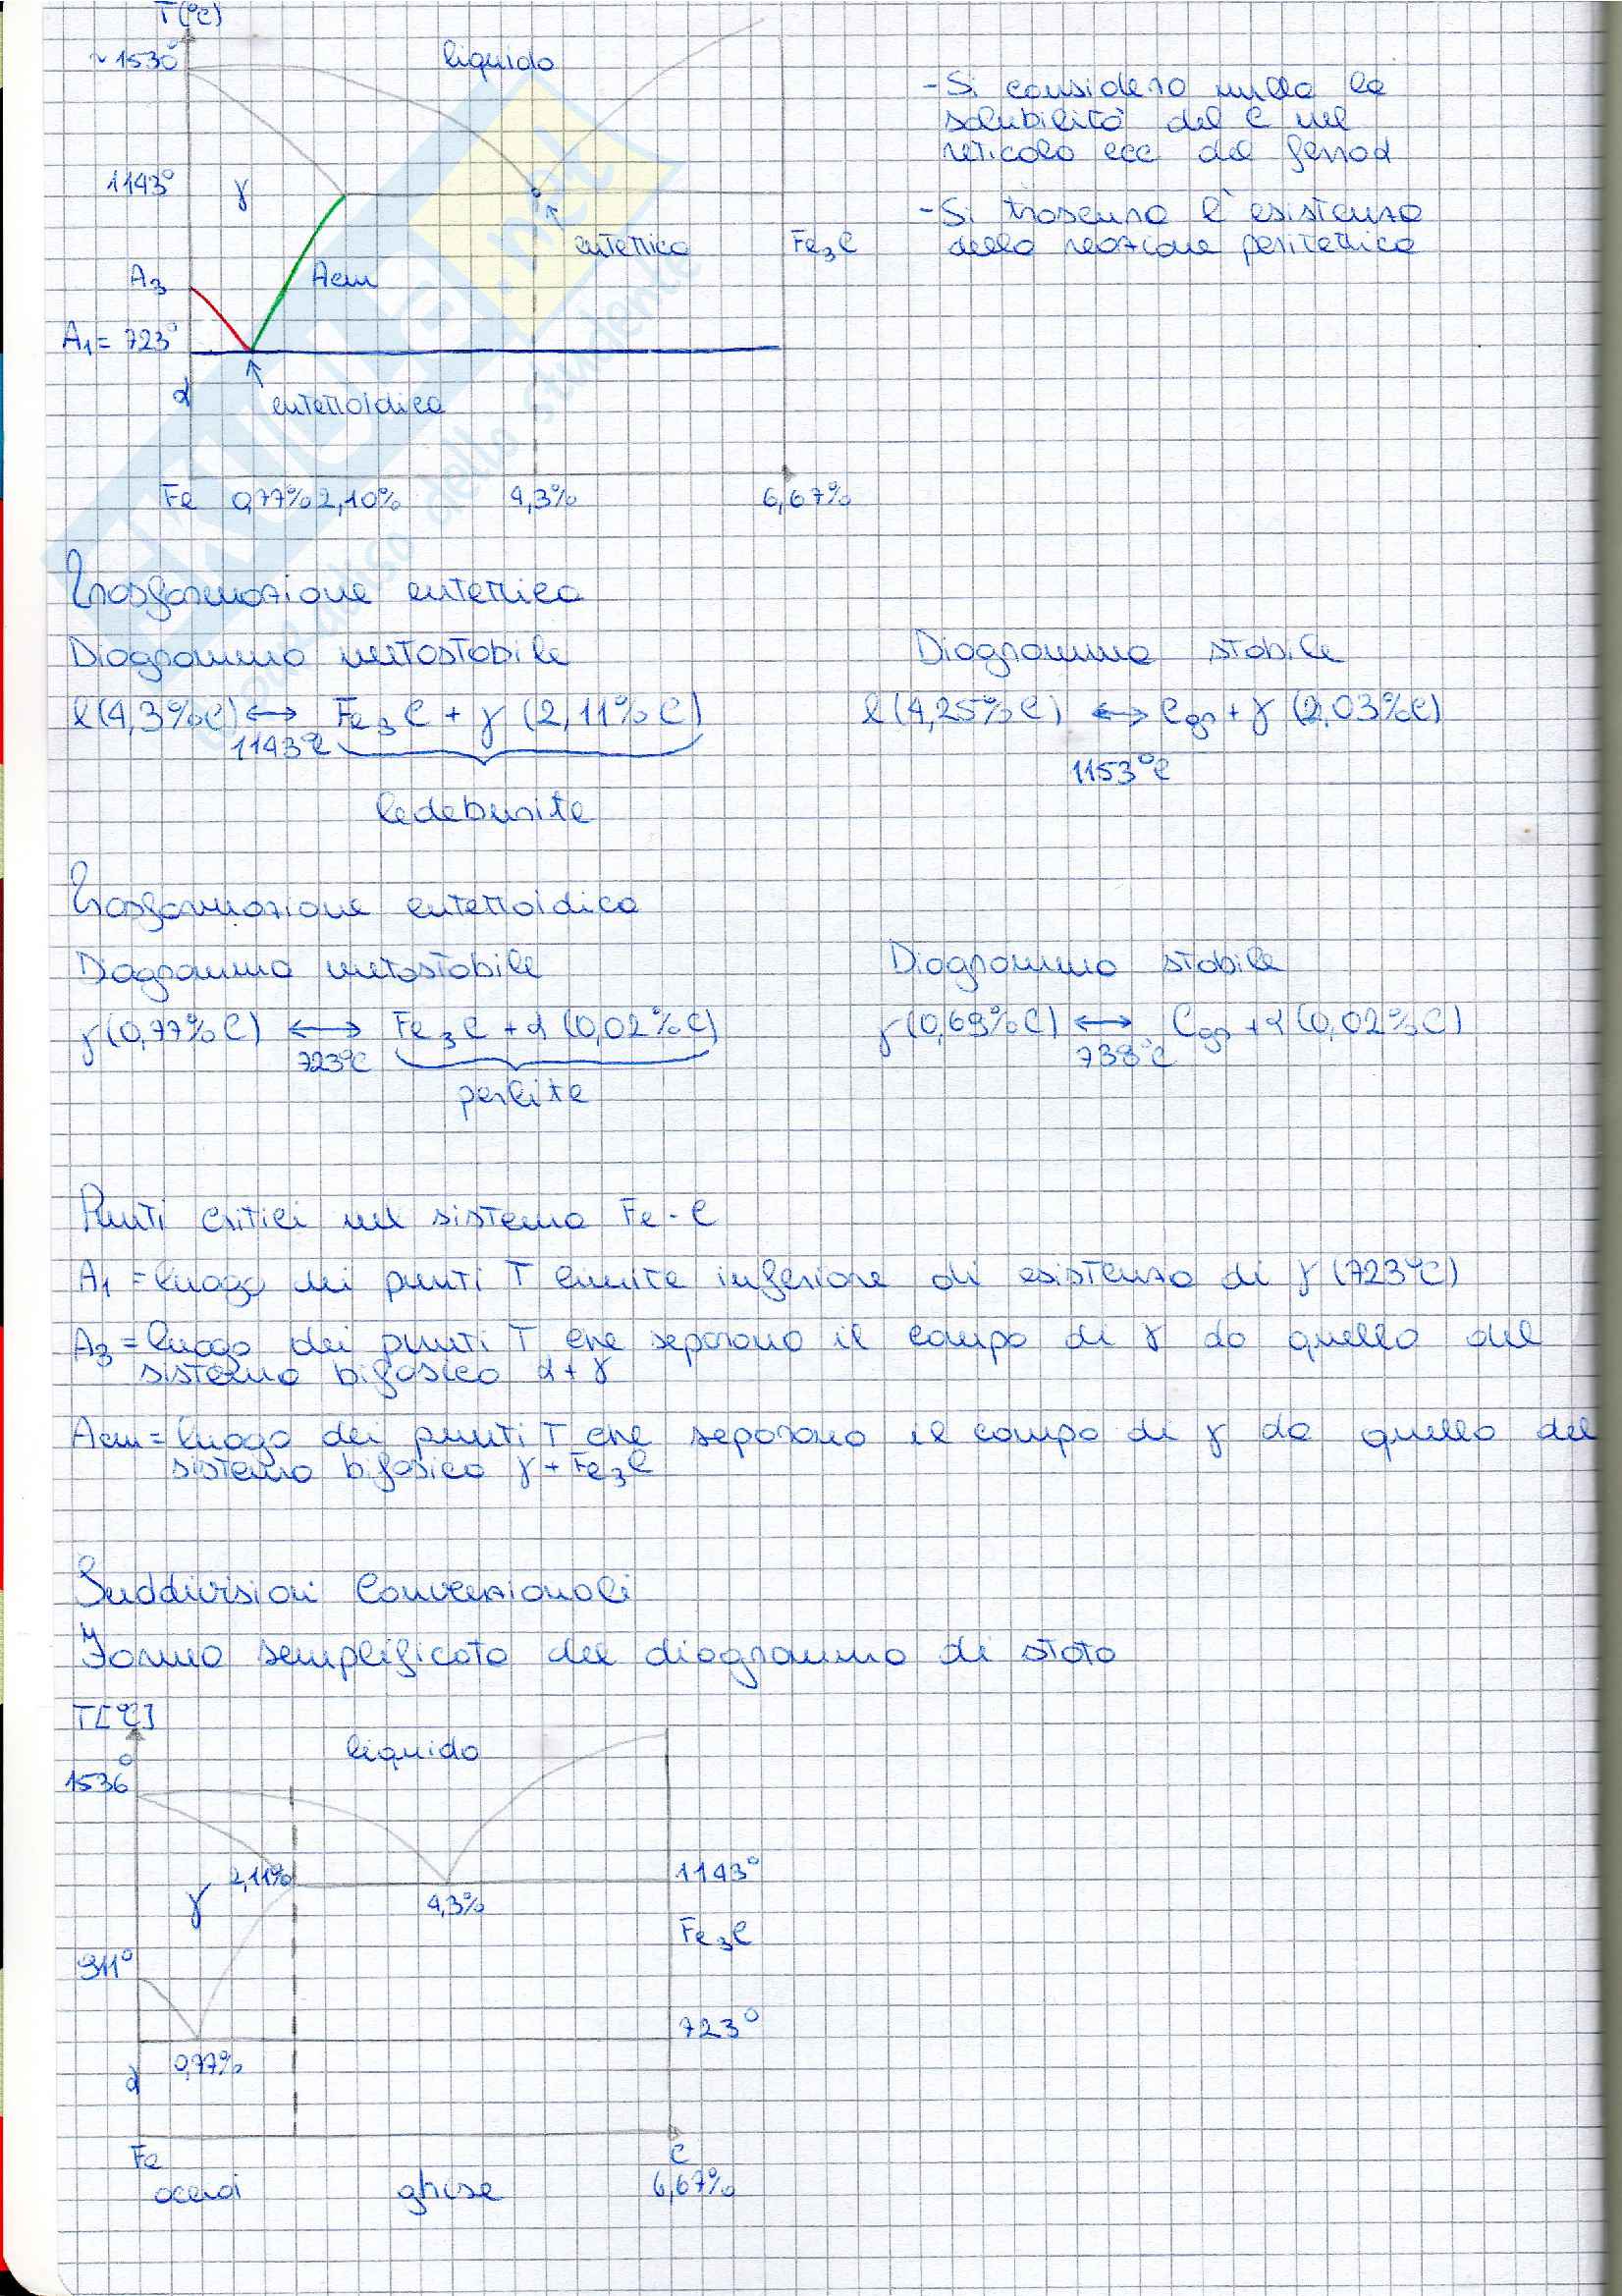 T(°C)
~1530°
liquido
1143°
γ
A3
Acm
eutettico
Fe3C
A1 = 723°
α
eutettoidico
Fe 0,77% 2,10% 4,3% 6,67%
- Si considera nulla la
solubilità del C nel
reticolo ccc del ferro α
- Si trascura l'esistenza
della reazione peritettica
Trasformazione eutettica
Diagramma metastabile Diagramma stabile
l(4,3%C) ↔ Fe3C + γ (2,11%C) l(4,25%C) ↔ Cgr + γ (2,03%C)
1143°C 1153°C
ledeburite
Trasformazione eutettoidica
Diagramma metastabile Diagramma stabile
γ(0,77%C) ↔ Fe3C + α (0,02%C) γ(0,69%C) ↔ Cgr + α (0,02%C)
723°C 738°C
perlite
Punti critici nel sistema Fe-C
A1 = luogo dei punti T limite inferiore di esistenza di γ (723°C)
A3 = luogo dei punti T che separano il campo di γ da quello del
sistema bifasico α + γ
Acm = luogo dei punti T che separano il campo di γ da quello del
sistema bifasico γ + Fe3C
Suddivisioni Convenzionali
Forma semplificata del diagramma di stato
T[°C]
liquido
1536°
2,11%
1143°
γ
4,3%
Fe3C
911°
723°
0,77%
α
Fe C
acciai ghise 6,67%